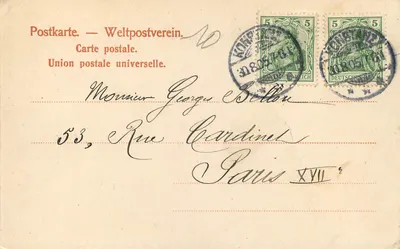 Postkarte. — Weltpostverein.
Carte postale.
Union postale universelle.
10
5 5
5 5
KONSTANZ
KONSTANZ
Monsieur Georges Bellou
53, Rue Cardinet
Paris XVII